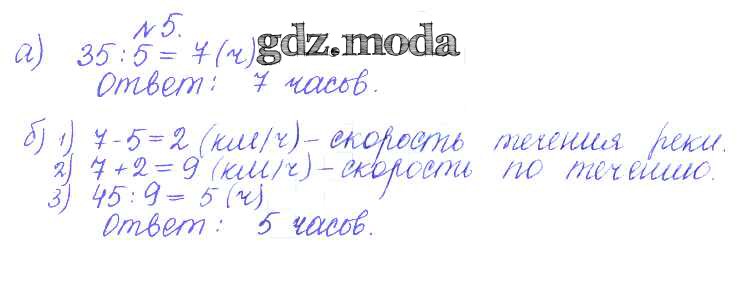 №5.
а) 35:5=7(ч) gdz.moda
Ответ: 7 часов.
б) 1) 7-5=2 (км/ч)-скорость течения реки.
2) 7+2=9 (км/ч)-скорость по течению.
3) 45:9=5(ч)
Ответ: 5 часов.